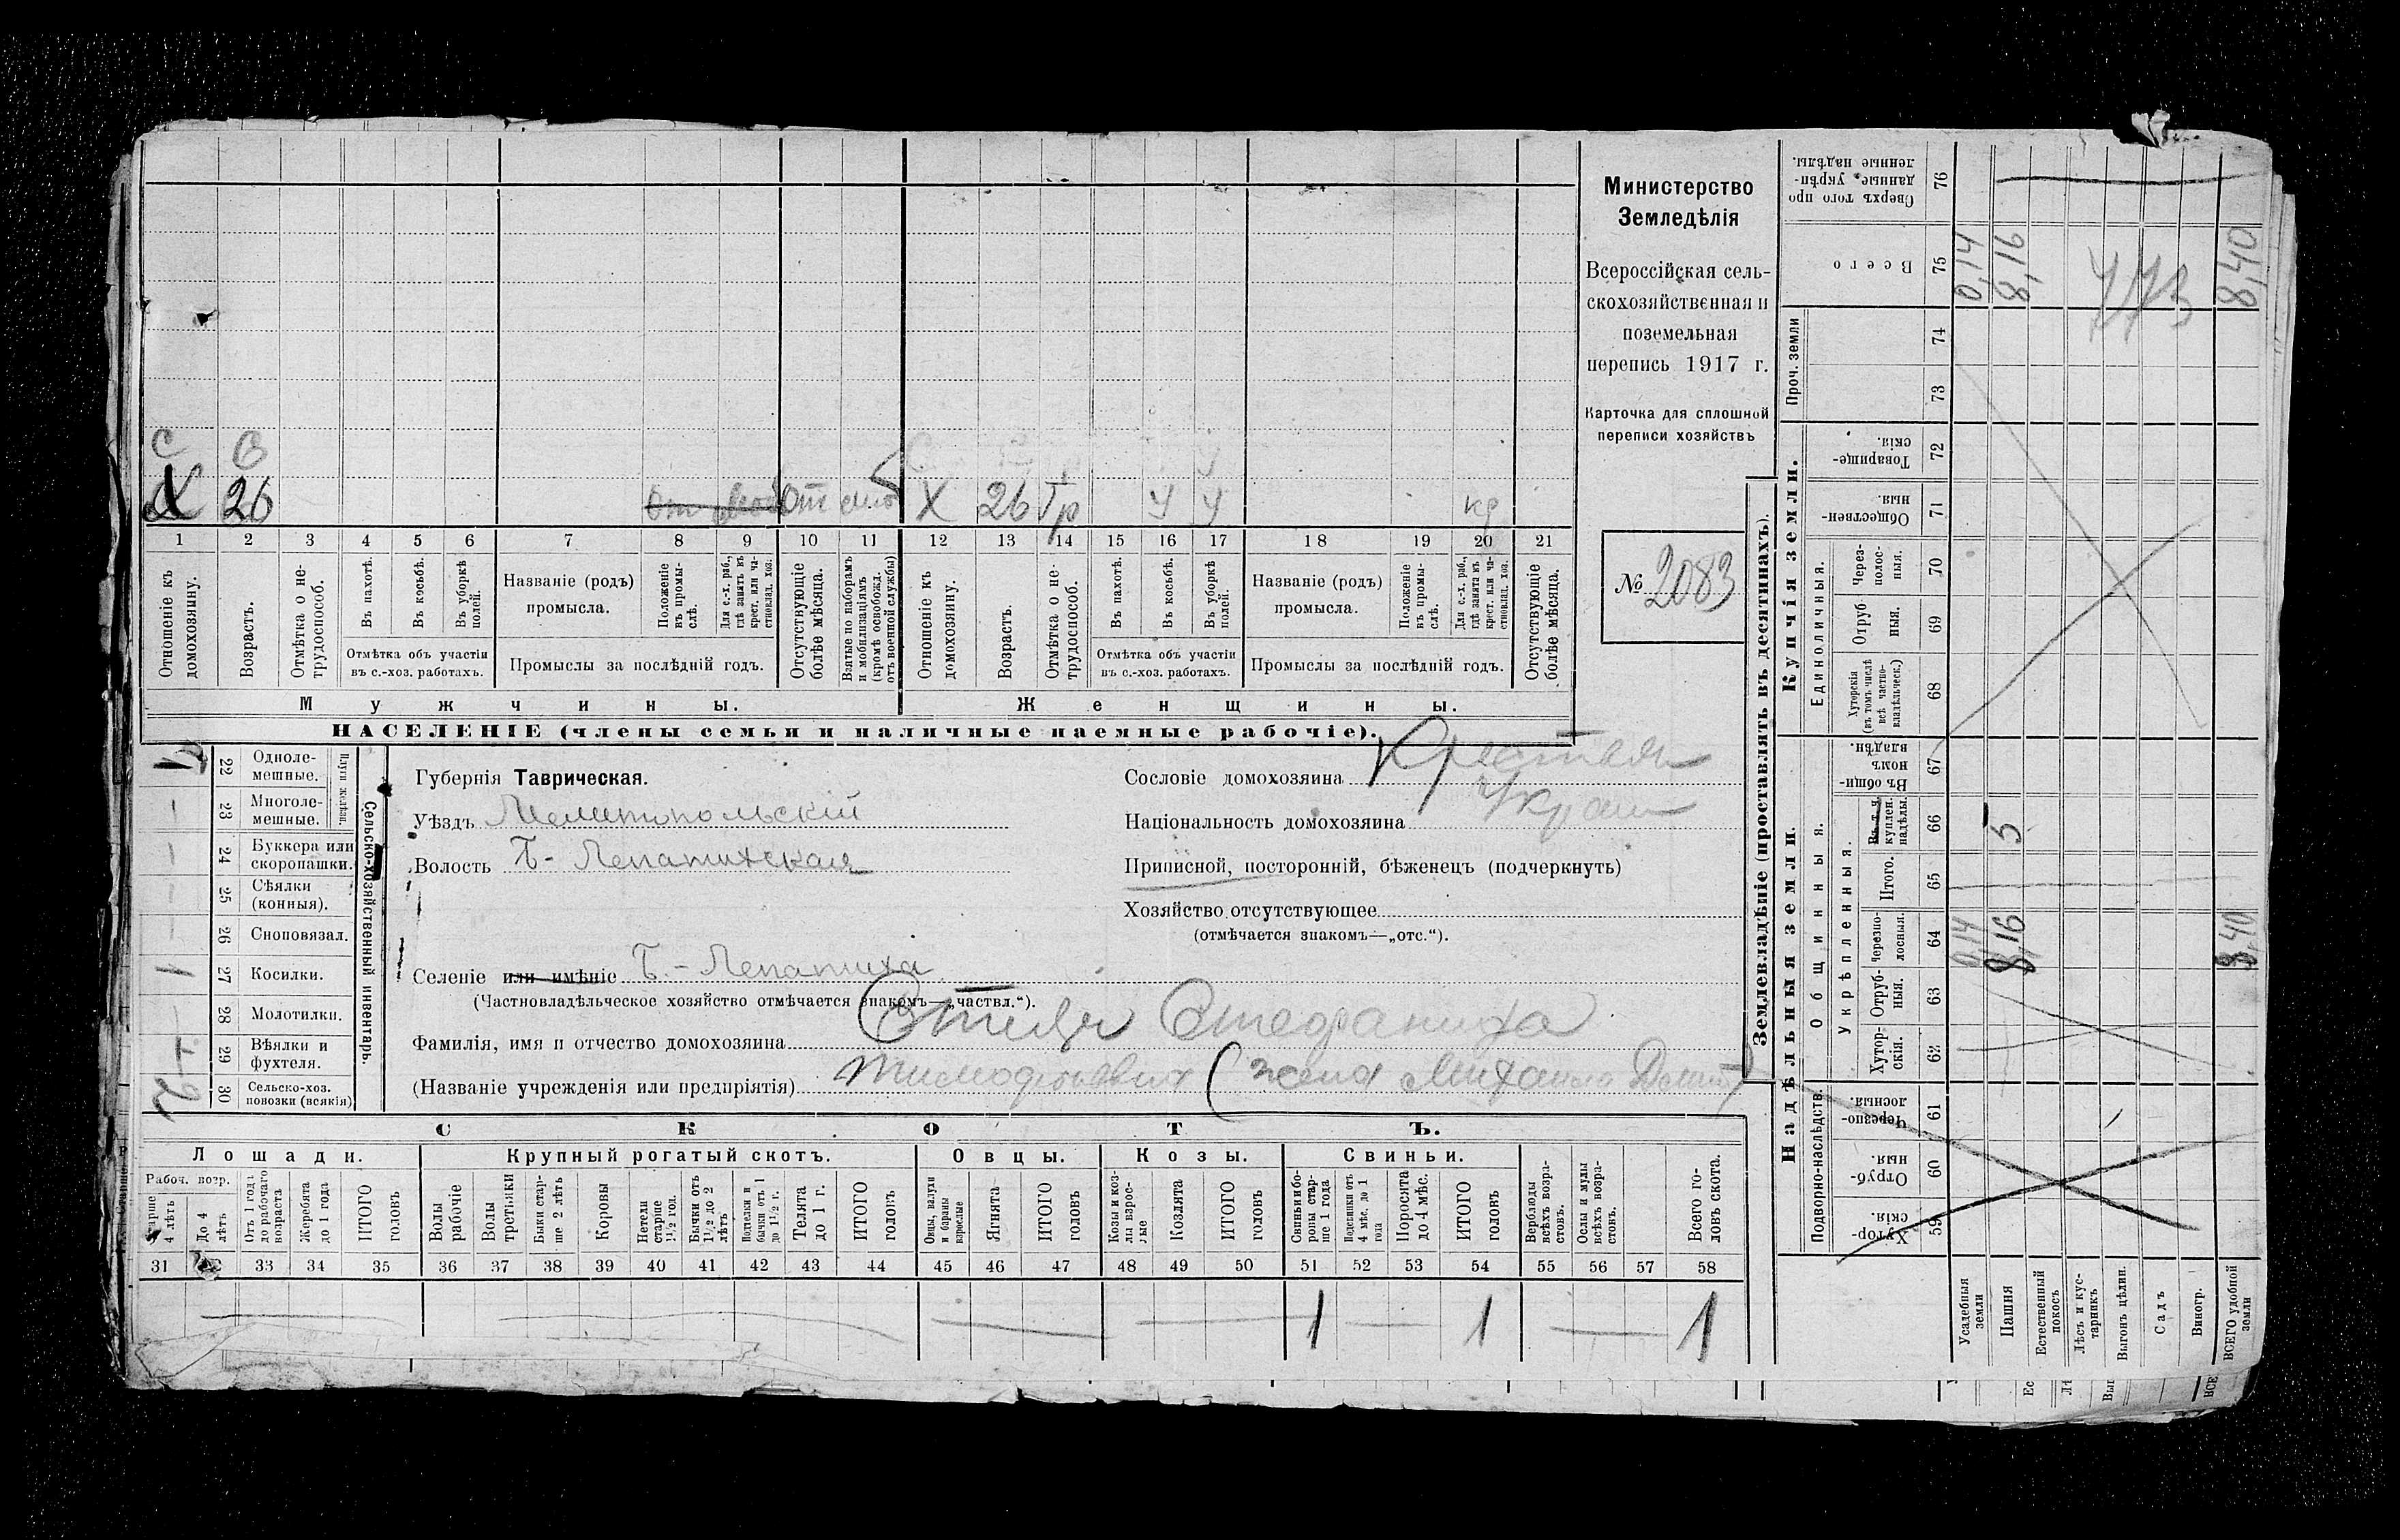 С В
Х 26 Х 26 Тр У У
1 2 3 4 5 6 7 8 9 10 11 12 13 14 15 16 17 18 19 20 21
Отношеніе къ домохозяину.
Возрастъ.
Отмѣтка о не-
трудоспособ.
Въ пахотѣ.
Въ косьбѣ.
Въ уборкѣ
полей.
Отмѣтка объ участіи
въ с.-хоз. работахъ.
Названіе (родъ)
промысла.
Положеніе
въ промы-
слѣ.
Для с.-х. раб.,
гдѣ занятъ въ
крест. или ча-
стновлад. хоз.
Промыслы за послѣдній годъ.
Отсутствующіе
болѣе мѣсяца.
Взятые по наборамъ
и мобилизаціямъ
(кромѣ освобожд.
отъ военной службы)
Отношеніе къ
домохозяину.
Возрастъ.
Отмѣтка о не-
трудоспособ.
Въ пахотѣ.
Въ косьбѣ.
Въ уборкѣ
полей.
Отмѣтка объ участіи
въ с.-хоз. работахъ.
Названіе (родъ)
промысла.
Положеніе
въ промы-
слѣ.
Для с.-х. раб.,
гдѣ занята въ
крест. или ча-
стновлад. хоз.
Промыслы за послѣдній годъ.
Отсутствующіе
болѣе мѣсяца.
Мужчины. Женщины.
НАСЕЛЕНІЕ (члены семьи и наличные наемные рабочіе).
Министерство
Земледѣлія
Всероссійская сель-
скохозяйственная и
поземельная
перепись 1917 г.
Карточка для сплошной
переписи хозяйствъ
№ 2083
22 Одноле-
мешные.
23 Многоле-
мешные.
Плуги желѣзн.
24 Буккера или
скоропашки.
25 Сѣялки
(конныя).
26 Сноповязал.
27 Косилки.
28 Молотилки.
29 Вѣялки и
фухтеля.
30 Сельско-хоз.
повозки (всякія)
Сельско-хозяйственный инвентарь.
Губернія Таврическая.
Уѣздъ Мелитопольскій
Волость Б-Лепатихская
Селеніе или имѣніе Б.-Лепатиха
(Частновладѣльческое хозяйство отмѣчается знакомъ—„частвл.“).
Фамилія, имя и отчество домохозяина Стефанида
(Названіе учрежденія или предпріятія) (жена Михаила
Сословіе домохозяина
Національность домохозяина Украин
Приписной, посторонній, бѣженецъ (подчеркнуть)
Хозяйство отсутствующее
(отмѣчается знакомъ—„отс.“).
СКОТЪ.
Лошади. Крупный рогатый скотъ. Овцы. Козы. Свиньи.
Рабоч. возр.
Старше
4 лѣтъ
До 4
лѣтъ
Отъ 1 года
до рабочаго
возраста
Жеребята
до 1 года
ИТОГО
головъ
Волы
рабочіе
Волы
третьяки
Быки стар-
ше 2 лѣтъ
Коровы
Нетели
старше
1½ год.
Бычки отъ
1½ до 2
лѣтъ
Подтелки и
бычки отъ 1
до 1½ г.
Телята
до 1 г.
ИТОГО
головъ
Овцы, валухи
и бараны
взрослые
Ягнята
ИТОГО
головъ
Козы и коз-
лы взрос-
лые
Козлята
ИТОГО
головъ
Свиньи и бо-
ровы стар-
ше 1 года
Подсвинки отъ
4 мѣс. до 1
года
Поросята
до 4 мѣс.
ИТОГО
головъ
Верблюды
всѣхъ возра-
стовъ.
Ослы и мулы
всѣхъ возра-
стовъ.
Всего го-
ловъ скота.
31 33 34 35 36 37 38 39 40 41 42 43 44 45 46 47 48 49 50 51 52 53 54 55 56 57 58
1 1 1
Землевладѣніе (проставлять въ десятинахъ).
Надѣльныя земли. Купчія земли.
Подворно-наслѣдств.
Общинныя.
Укрѣпленныя.
Единоличныя.
Проч. земли
Хутор-
скія. 59
Отруб-
ныя. 60
Черезпо-
лосныя. 61
Хутор-
скія. 62
Отруб-
ныя. 63
Черезпо-
лосныя. 64
Итого. 65
Въ т. ч.
куплен.
надѣлы. 66
Въ общин-
номъ
владѣн. 67
Хуторскія
(въ томъ числѣ
всѣ частно-
владѣльческ.) 68
Отруб-
ныя. 69
Через-
полос-
ныя. 70
Обществен-
ныя. 71
Товарище-
скія. 72
73
74
Всего 75
Сверхъ того про-
данные укрѣп-
ленные надѣлы. 76
Усадебныя
земли 0,14 0,14
Пашня 8,16 5 8,16
Естественный
покосъ
Лѣсъ и кус-
тарникъ
Выгонъ цѣлин.
Садъ
Виногр.
ВСЕГО удобной
земли 8,40 8,40